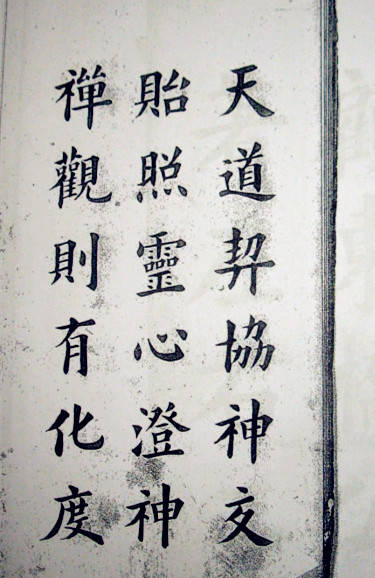 天道契協神交
貽照靈心澄神
禪觀則有化度